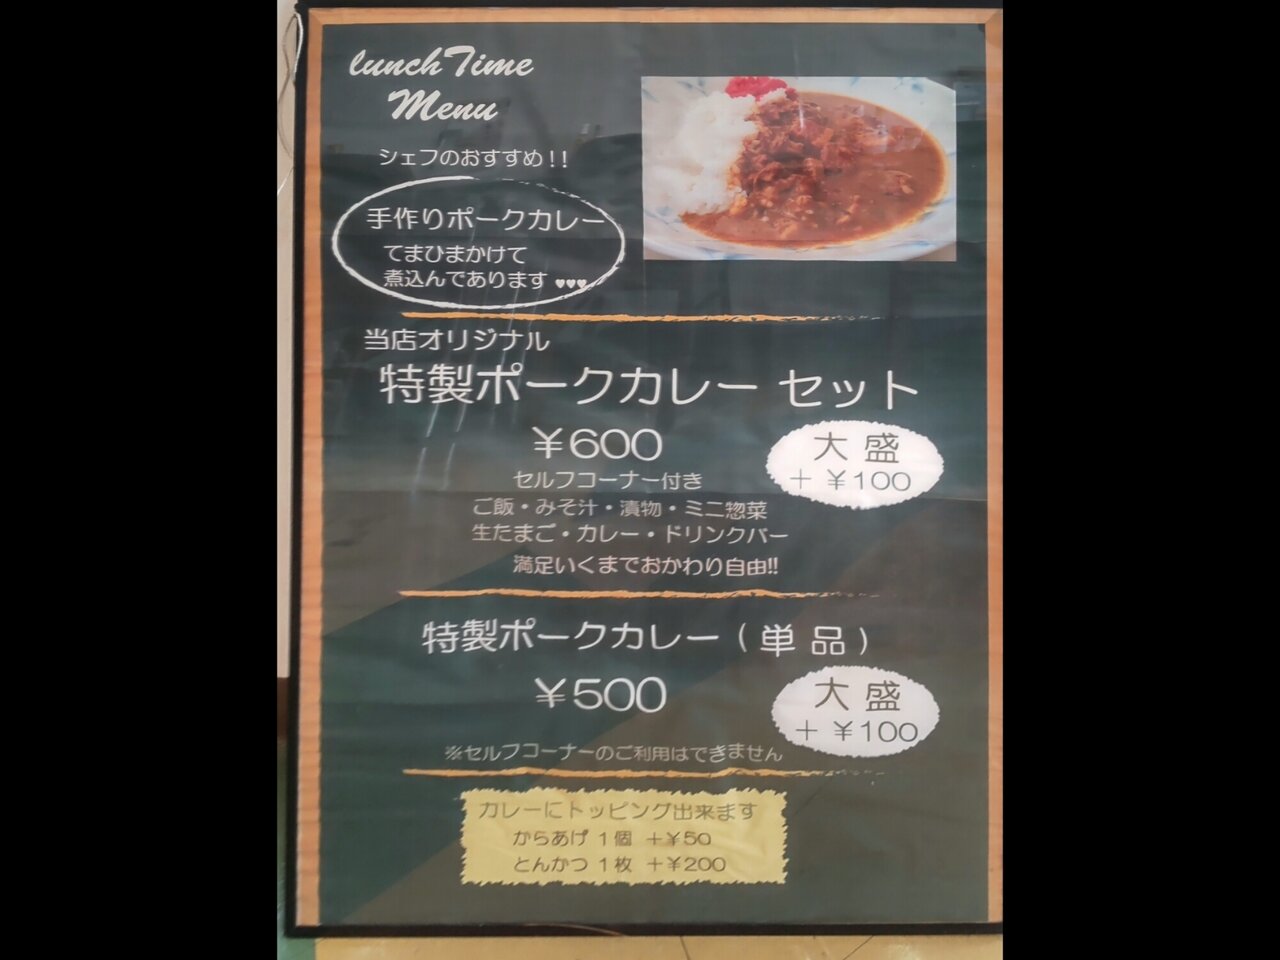 lunch Time
Menu
シェフのおすすめ!!
手作りポークカレー
てまひまかけて
煮込んであります ♥♥♥
当店オリジナル
特製ポークカレー セット
¥600
大盛
+ ¥100
セルフコーナー付き
ご飯・みそ汁・漬物・ミニ惣菜
生たまご・カレー・ドリンクバー
満足いくまでおかわり自由!!
特製ポークカレー(単品)
¥500
大盛
+ ¥100
※セルフコーナーのご利用はできません
カレーにトッピング出来ます
からあげ 1個 +¥50
とんかつ 1枚 +¥200